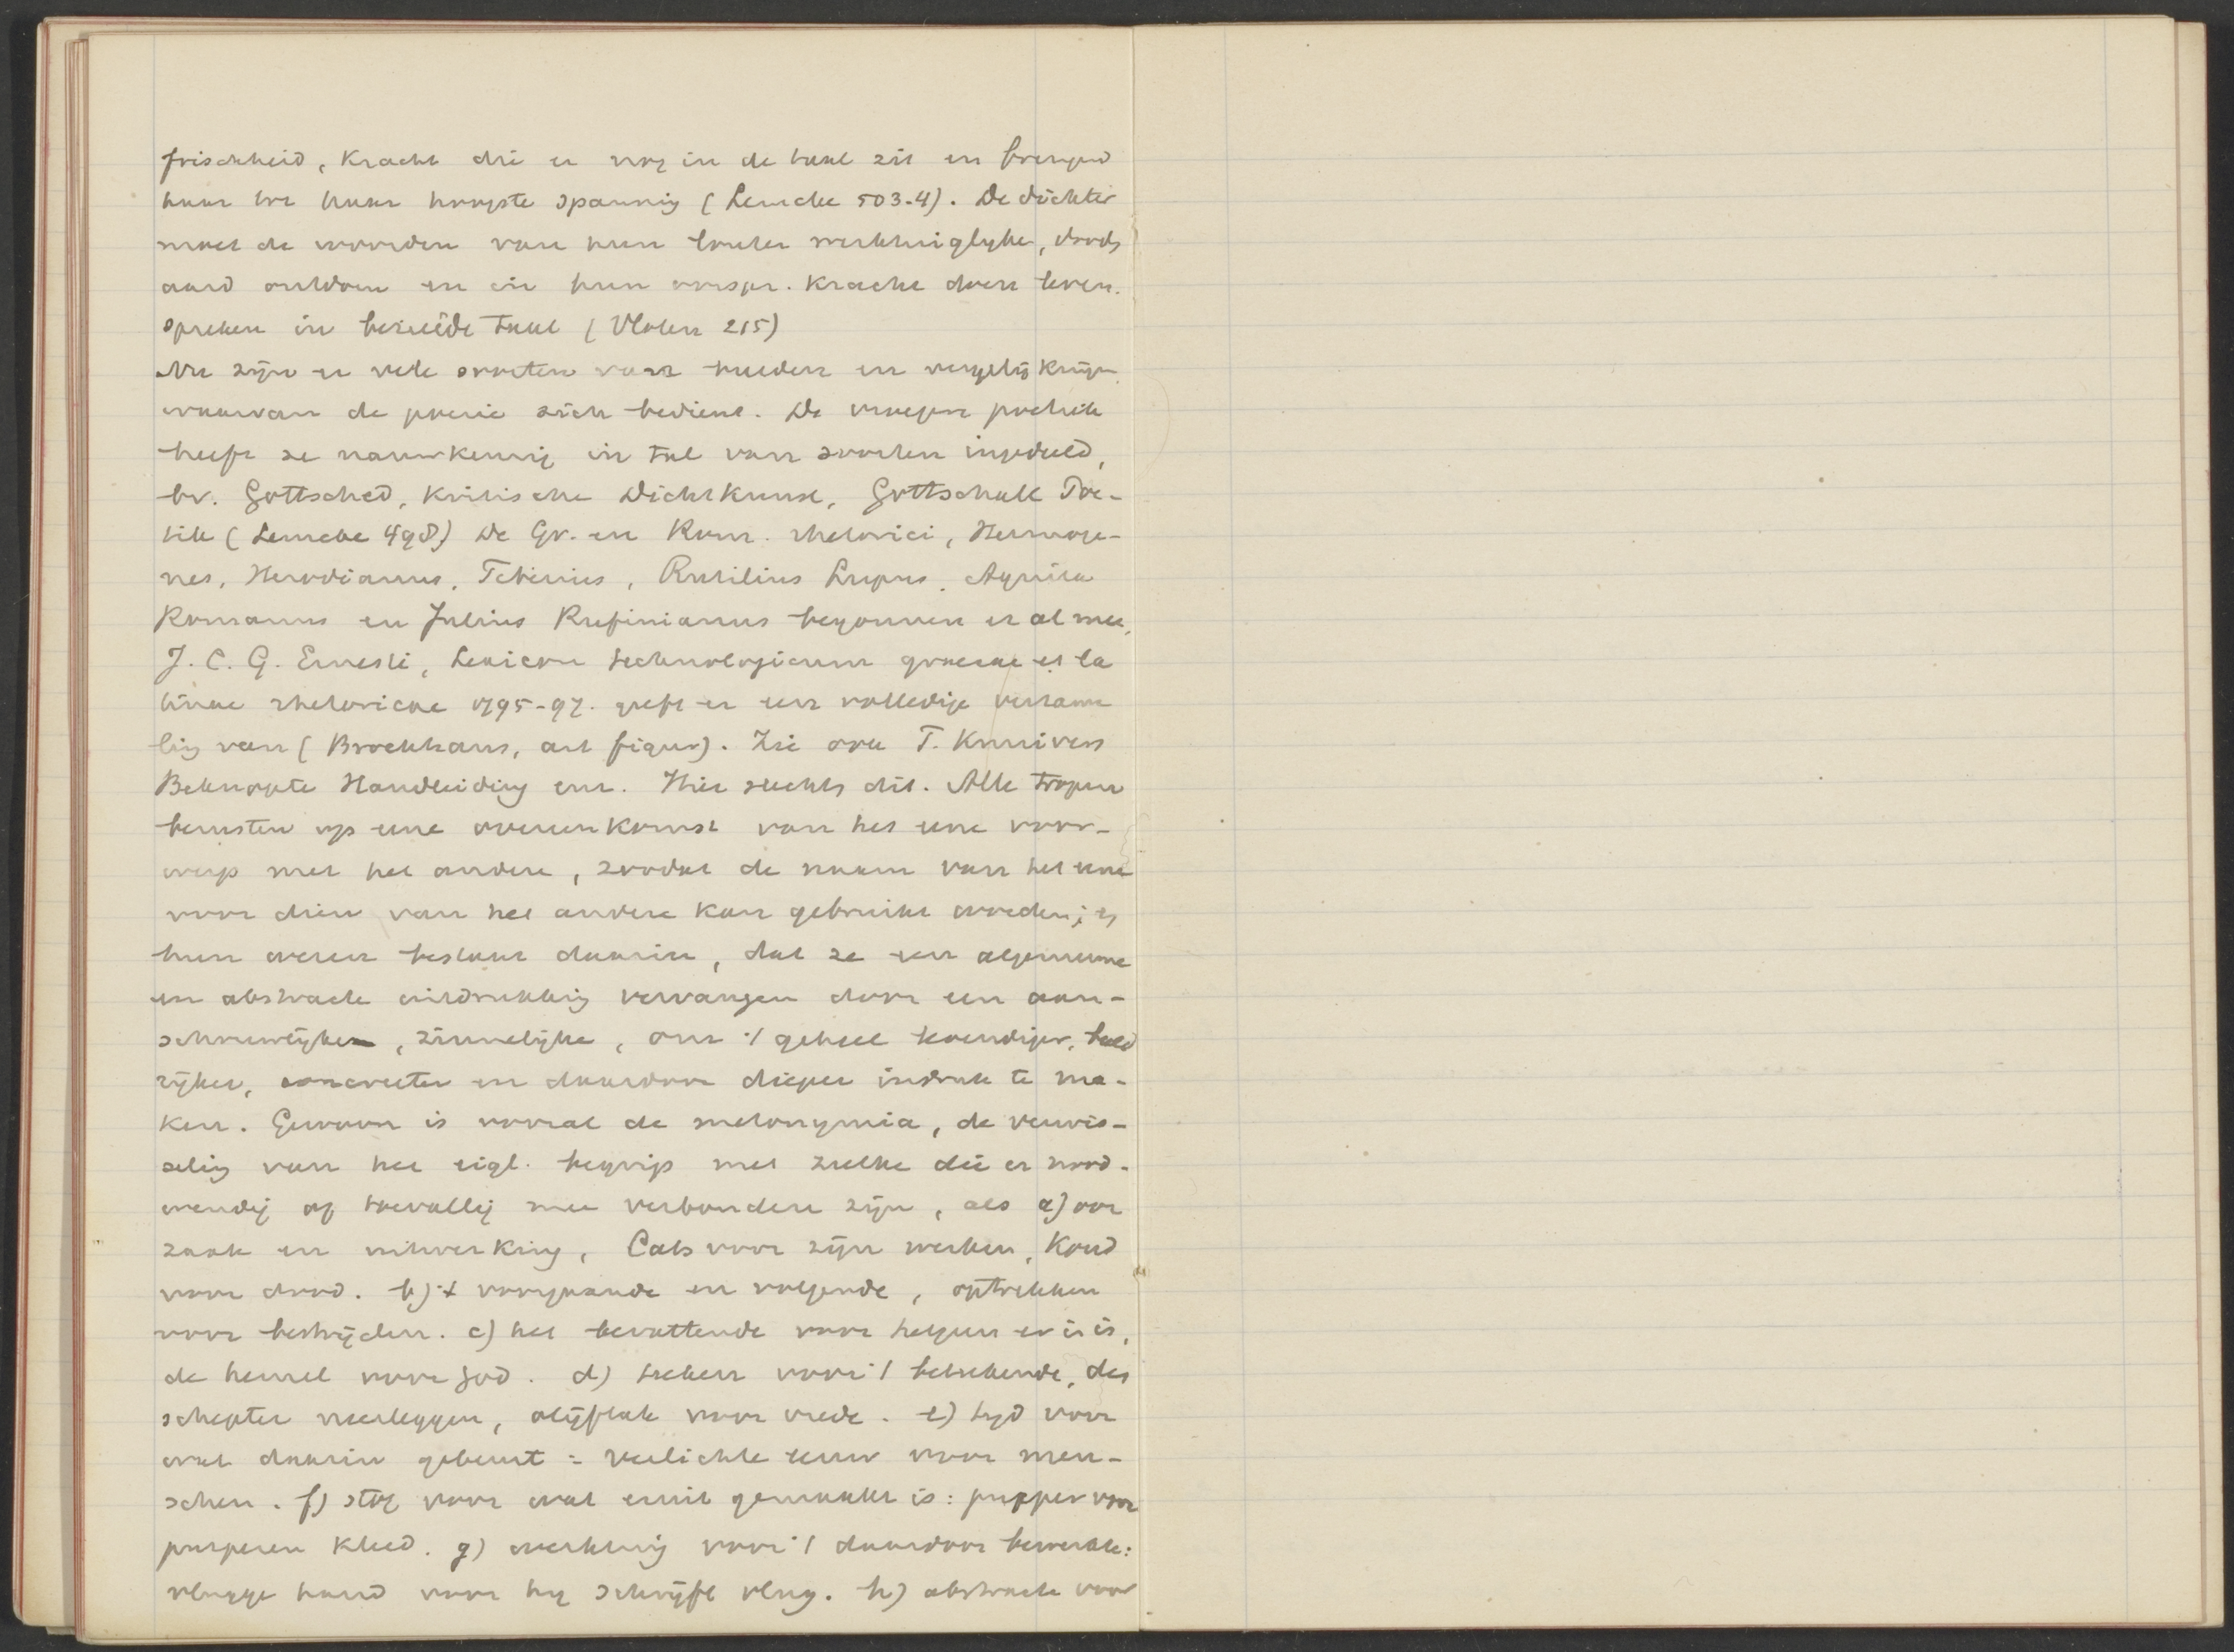 frischheid, kracht die er nog in de taal zit en brengend
haar tot haar hoogste spanning (Lemcke 503-4). De dichter
moet de woorden van hun louter werktuiglyke, doods
aard ontdoen en in hun oorspr. kracht doen leven.
spreken in bezielde taal (Vloten 215)
Nu zijn er vele soorten van beelden en vergelijkingen
waarvan de poezie zich bedient. De vroegere poetiek
heeft ze nauwkeurig in tal van soorten ingedeeld,
bv. Gottsched, Kritische Dichtkunst, Gottschall Poe-
tik (Lemcke 498) De Gr. en Rom. rhetorici, Hermoge-
nes, Herodianus, Tiberius, Rutilius Lupus, Aquila
Romanus en Julius Rufinianus begonnen er al mee,
J. C. G. Ernesti, Lexicon technologicum graecae et la
tinae rhetoricae 1795-97. geeft er een volledige verzame
ling van (Brockhaus, art figur). Zie ook T. Knuivers
Beknopte Handleiding enz. Hier slechts dit. Alle tropen
berusten op eene overeenkomst van het eene voor-
werp met het andere, zoodat de naam van het eene
voor dien van het andere kan gebruikt worden; en
hun wezen bestaat daarin, dat ze een algemeene
en abstracte uitdrukking vervangen door een aan-
schouwlijke, zinnelijke, om 't geheel levendiger, beeld
rijker, concreeter en daardoor dieper indruk te ma-
ken. Gewoon is vooral de metonymia, de verwis-
seling van het eigl. begrip met zulke die er nood-
wendig of toevallig mee verbonden zijn, als a) oor
zaak en uitwerking, Cats voor zijn werken, koud
voor dood. b) 't voorgaande en volgende, optrekken
voor bestrijden. c) het bevattende voor hetgeen er in is,
de hemel voor God. d) teeken voor 't beteekende, den
schepter neerleggen, olijftak voor vrede. e) tyd voor
wat daarin gebeurt = verlichte eeuw voor men-
schen. f) stof voor wat eruit gemaakt is: purper voor
purperen kleed. g) werktuig voor 't daardoor bewerkte:
vlugge hand voor hy schrijft vlug. h) abstracte voor